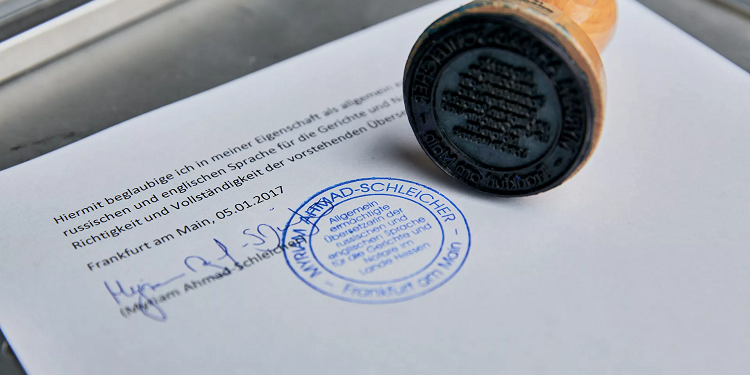 Hiermit beglaubige ich in meiner Eigenschaft als allgemein
russischen und englischen Sprache für die Gerichte und
Richtigkeit und Vollständigkeit der vorstehenden
Frankfurt am Main, 05.01.2017
(Myriam Ahmad-Schleicher
MYRIAM AHMAD-SCHLEICHER
Allgemein
ermächtigte
Übersetzerin der
russischen und
englischen Sprache
für die Gerichte und
Notare im
Lande Hessen
Frankfurt am Main